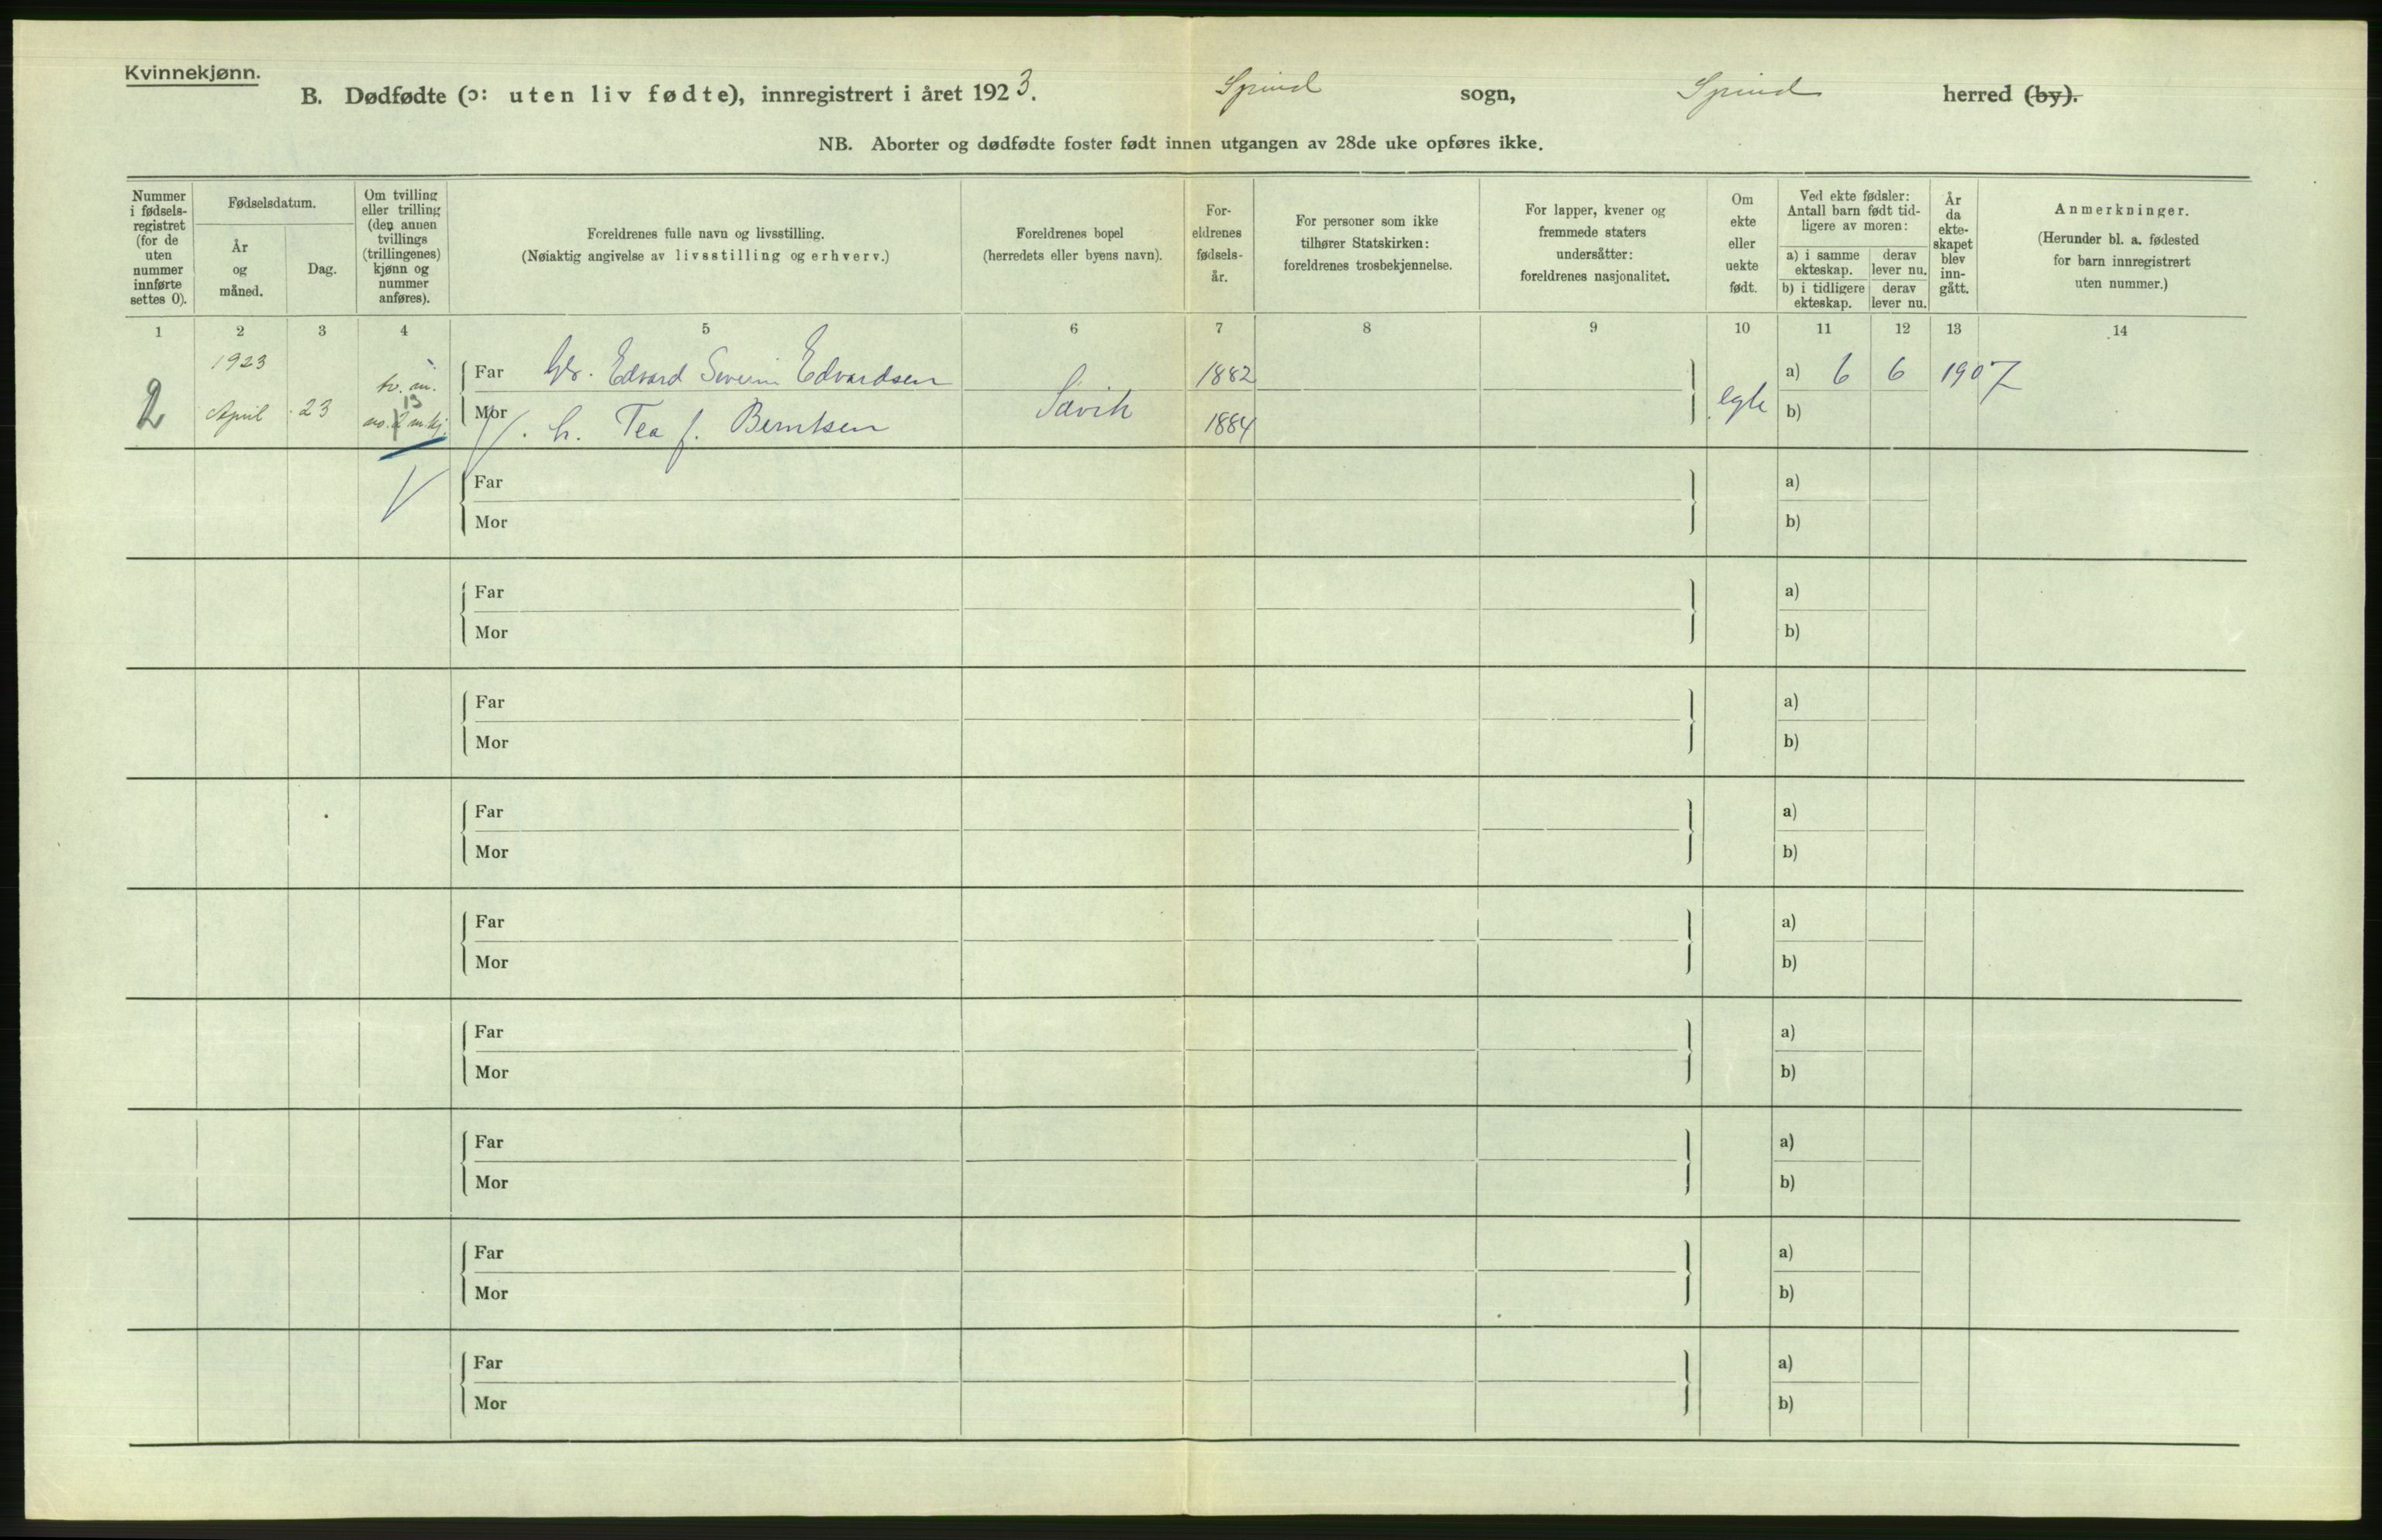 Kvinnekjønn.
B. Dødfødte (ɔ: uten liv fødte), innregistrert i året 1923. Spind sogn, Spind herred (by).
NB. Aborter og dødfødte foster født innen utgangen av 28de uke opføres ikke.
Nummer i fødsels-registret (for de uten nummer innførte settes 0).
Fødselsdatum.
År og måned.
Dag.
Om tvilling eller trilling (den annen tvillings (trillingenes) kjønn og nummer anføres).
Foreldrenes fulle navn og livsstilling.
(Nøiaktig angivelse av livsstilling og erhverv.)
Foreldrenes bopel
(herredets eller byens navn).
For-eldrenes fødsels-år.
For personer som ikke tilhører Statskirken: foreldrenes trosbekjennelse.
For lapper, kvener og fremmede staters undersåtter: foreldrenes nasjonalitet.
Om ekte eller uekte født.
Ved ekte fødsler: Antall barn født tid-ligere av moren:
a) i samme ekteskap.
derav lever nu.
b) i tidligere ekteskap.
derav lever nu.
År da ekte-skapet blev inn-gått.
Anmerkninger.
(Herunder bl. a. fødested for barn innregistrert uten nummer.)
1 2 3 4 5 6 7 8 9 10 11 12 13 14
2 1923 April 23 tv. m. 13 Far Edvard Severin Edvardsen Søvik 1882 egte a) 6 6 1907
Mor h. Tea f. Berntsen 1884 b)
Far a)
Mor b)
Far a)
Mor b)
Far a)
Mor b)
Far a)
Mor b)
Far a)
Mor b)
Far a)
Mor b)
Far a)
Mor b)
Far a)
Mor b)
Far a)
Mor b)